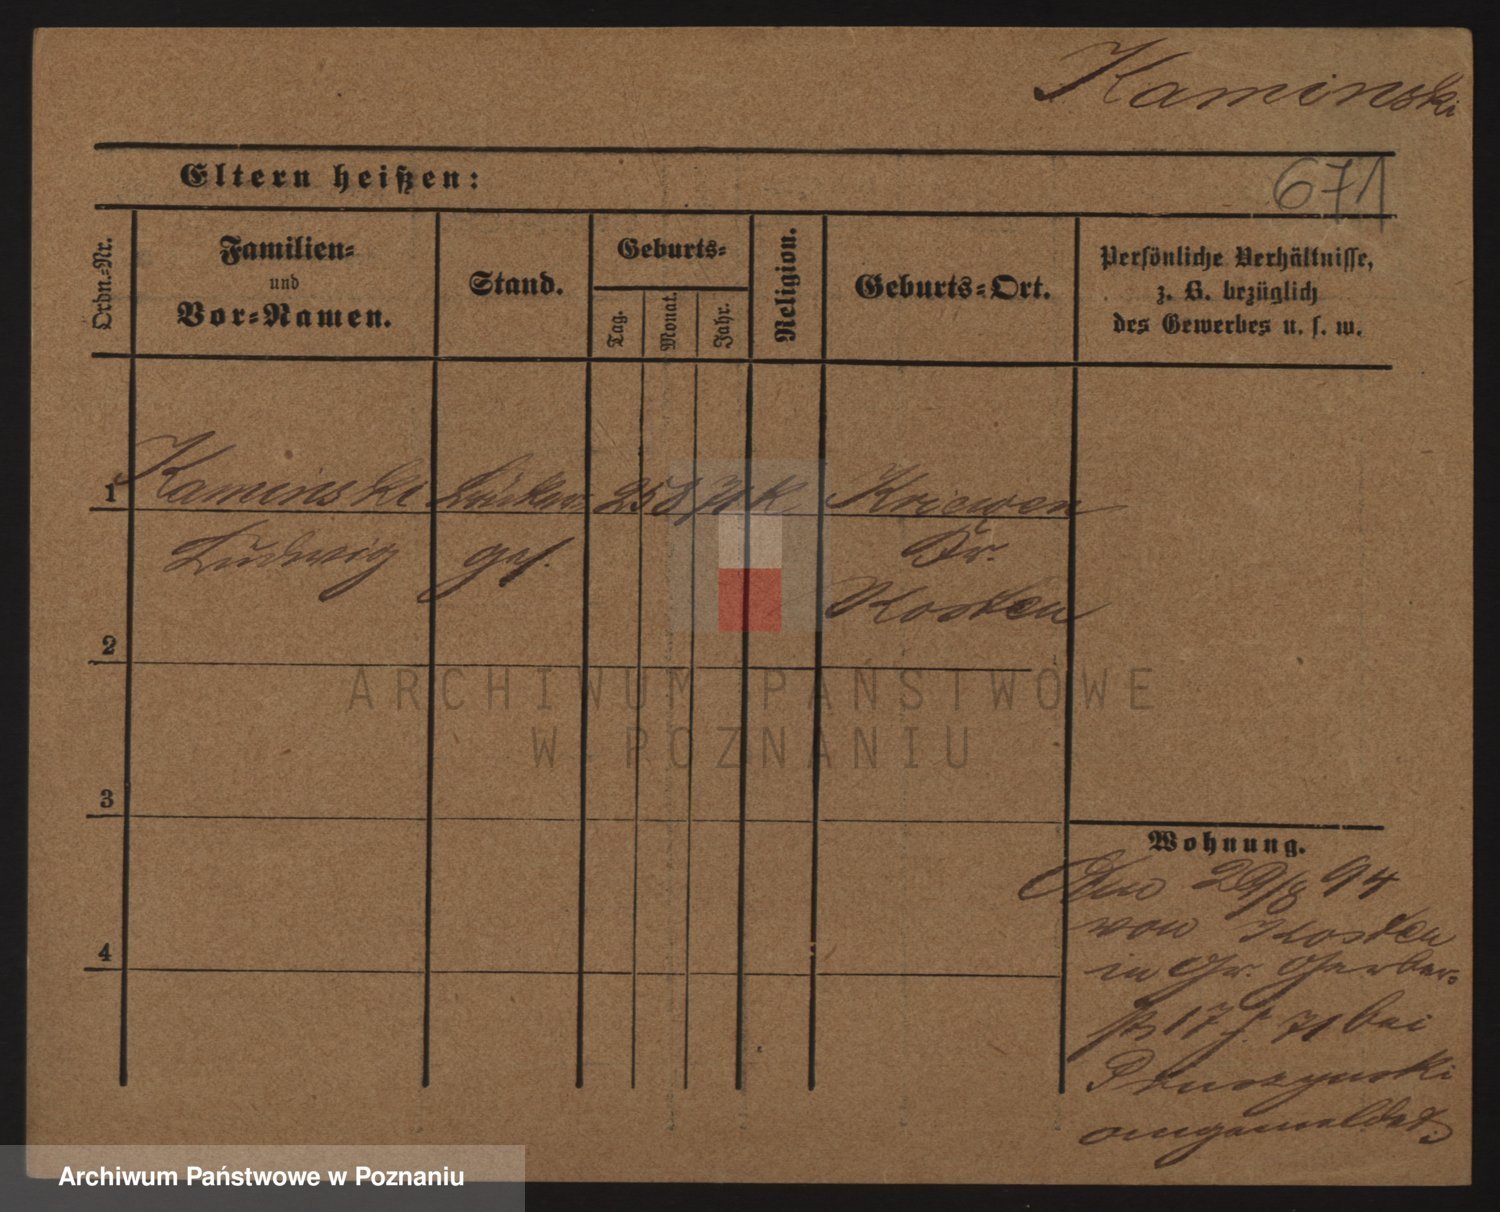 Kaminski
671
Eltern heißen:
Ordn.-Nr.
Familien-
und
Vor-Namen.
Stand.
Geburts-
Tag.
Monat.
Jahr.
Religion.
Geburts-Ort.
Persönliche Verhältnisse,
z. B. bezüglich
des Gewerbes u. s. w.
1 Kaminski 25 8 71 K. Kriewen
Ludwig ges. Kr.
Kosten
2
3
4
Wohnung.
Den 29/8 94
von Kosten
in Gr. Gerber-
str 17 f. 71 bei
angemeldet.
ARCHIWUM PAŃSTWOWE
W POZNANIU
Archiwum Państwowe w Poznaniu